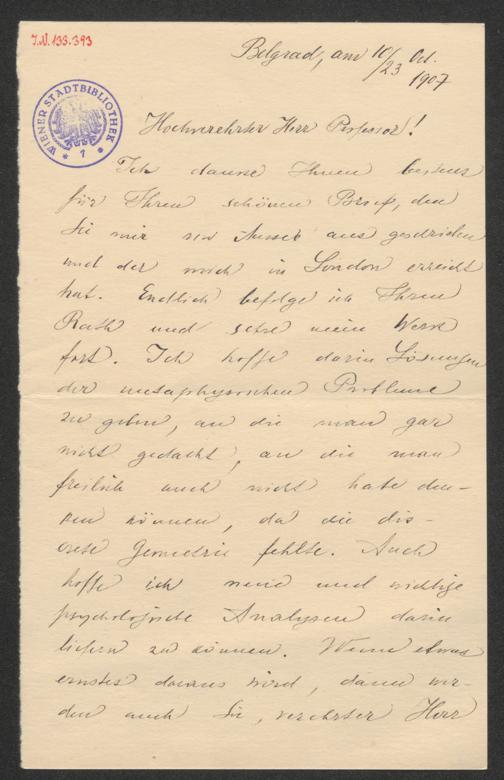 J.N. 138.393
WIENER STADTBIBLIOTHEK
* 1 *
Belgrad, am 10/23 Oct.
1907
Hochverehrter Herr Professor!
Ich danke Ihnen bestens
für Ihren schönen Brief, den
Sie mir von Aussee aus geschrieben
und der mich in London erreicht
hat. Endlich befolge ich Ihren
Rath und setze mein Werk
fort. Ich hoffe darin Lösungen
der metaphysischen Probleme
zu geben, an die man gar
nicht gedacht, an die man
freilich auch nicht hate den-
ken können, da die dis-
crete Geometrie fehlte. Auch
hoffe ich neue und wichtige
psychologische Analysen darin
liefern zu können. Wenn etwas
ernstes daraus wird, dann wer-
den auch Sie, verehrter Herr